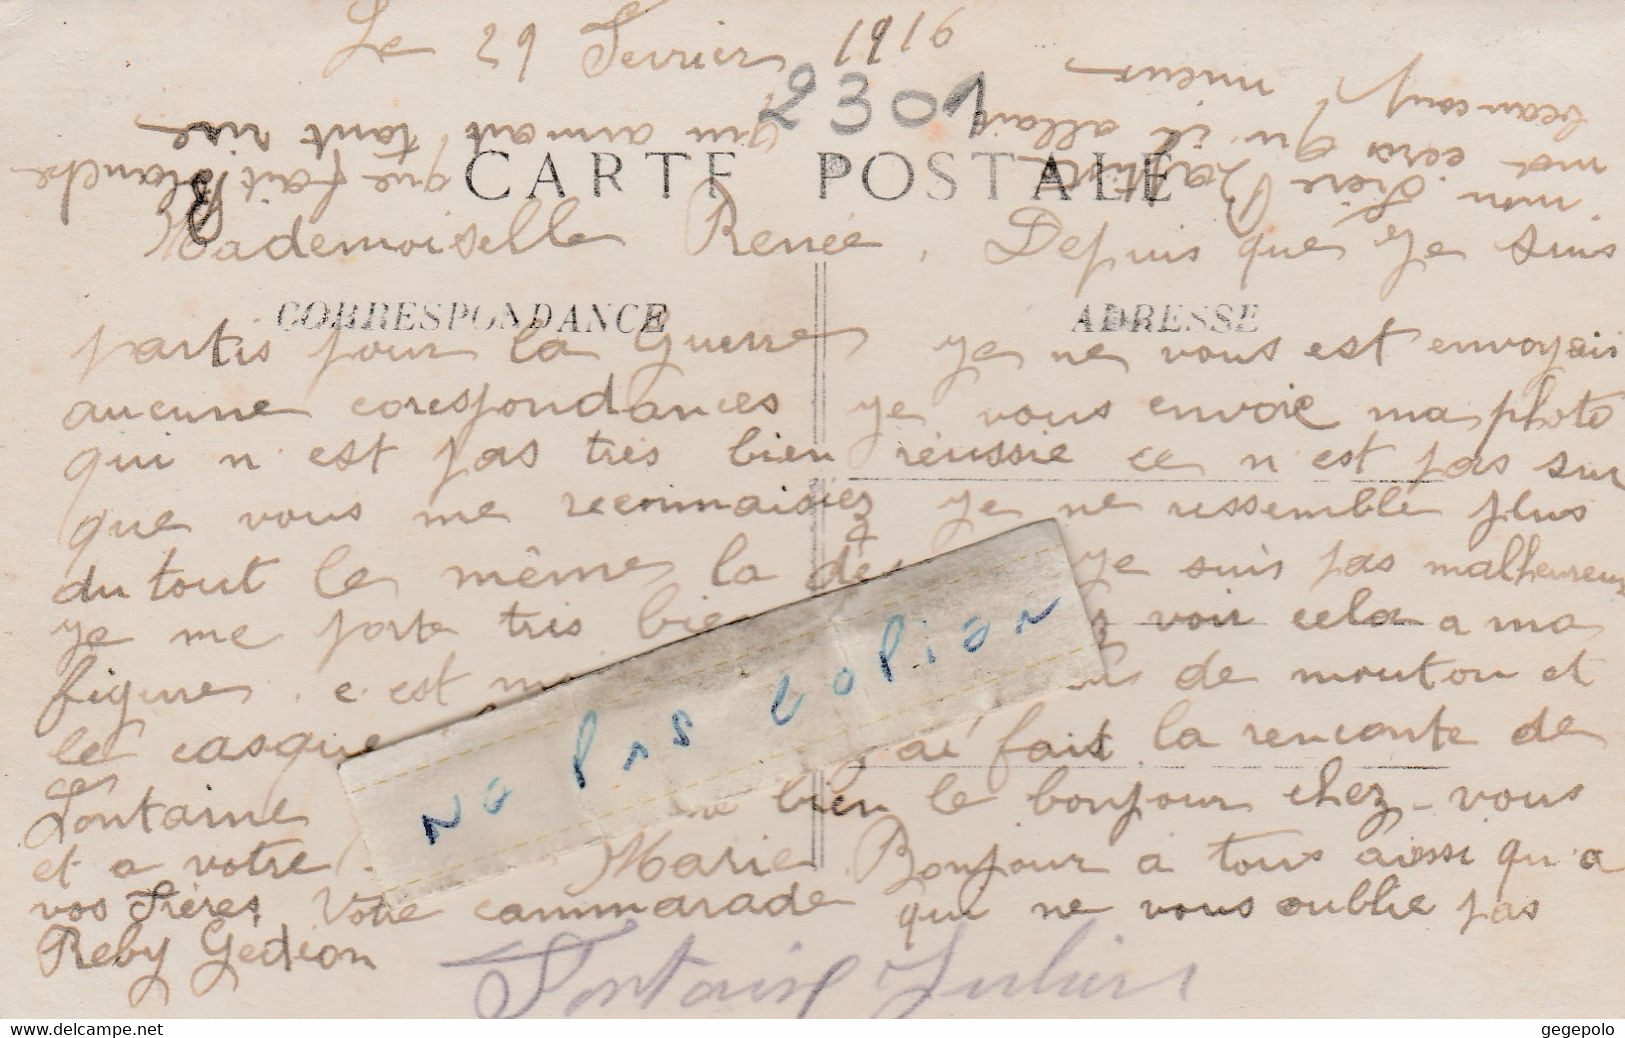 Le 29 Fevrier 1916
2301
CARTE POSTALE
Mademoiselle Renée. Depuis que je suis
CORRESPONDANCE
ADRESSE
partis pour la Guerre je ne vous est envoyais
aucune corespondances je vous envoie ma photo
qui n'est pas très bien réussie ce n'est pas sur
que vous me reconnaisiez je ne ressemble plus
du tout le même la des je suis pas malheureux
je me porte très bien voir cela a ma
figure. c'est de mouton et
le casque ai fait la renconte de
Fontaine bien le bonjour chez-vous
et a votre Marie. Bonjour a tous aissi qu'a
vos Frères, Votre cammarade qui ne vous oublie pas
Reby Gédéon
Fontaine Julien
No pas copian
Blanche que fait
qui aimait tant rire
mon Frère Baptiste
ma ecris qu'il allait
beaucoup mieux
gegepolo